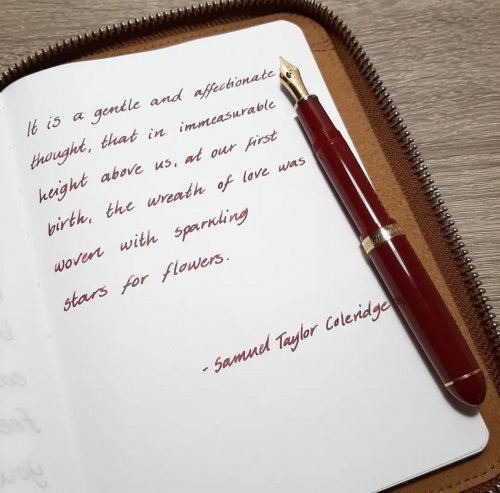 It is a gentle and affectionate
thought, that in immeasurable
height above us, at our first
birth, the wreath of love was
woven with sparkling
stars for flowers.
- Samuel Taylor Coleridge